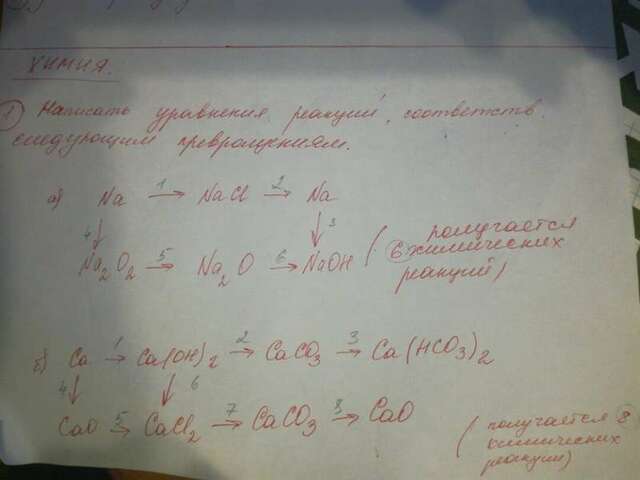 ХИМИЯ.
1) Написать уравнения реакций, соответств.
следующим превращениям.
а) Na 1→ NaCl 2→ Na
4↓ ↓3
Na2O2 5→ Na2O 6→ NaOH (получается
6 химических
реакций)
б) Ca 1→ Ca(OH)2 2→ CaCO3 3→ Ca(HCO3)2
4↓ ↓6
CaO 5→ CaCl2 7→ CaCO3 8→ CaO
(получается 8
химических
реакции)